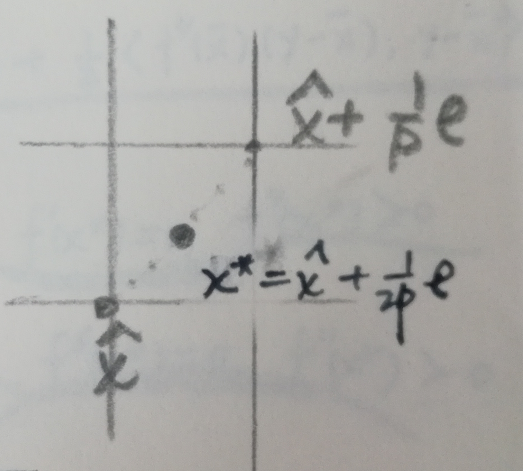 x̂ + 1/p e
x* = x̂ + 1/2p e
x̂